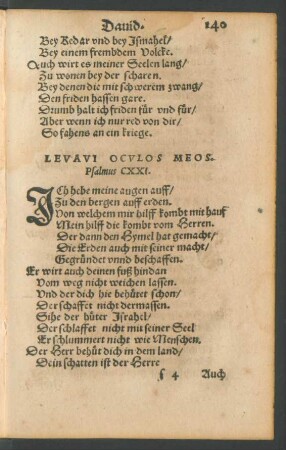 Dauid.
140
Bey Kedar vnd bey Jsmahel/
Bey einem frembdem Volcke.
Auch wirt es meiner Seelen lang/
Zu wonen bey der scharen.
Bey denen die mit schwerem zwang/
Den friden hassen gare.
Drumb halt ich friden für vnd für/
Aber wenn ich nur red von dir/
So fahens an ein kriege.
LEVAVI OCVLOS MEOS.
Psalmus CXXI.
ICh hebe meine augen auff/
Zu den bergen auff erden.
Von welchem mir hilff kombt mit hauf
Mein hilff die kombt vom Herren.
Der dann den Hymel hat gemacht/
Die Erden auch mit seiner macht/
Gegründet vnnd beschaffen.
Er wirt auch deinen fuß hindan
Vom weg nicht weichen lassen.
Vnd der dich hie behütet schon/
Der schaffet nicht dermassen.
Sihe der hüter Jsrahel/
Der schlaffet nicht mit seiner Seel
Er schlummert nicht wie Menschen.
Der Herr behüt dich in dem land/
Dein schatten ist der Herre
4
Auch